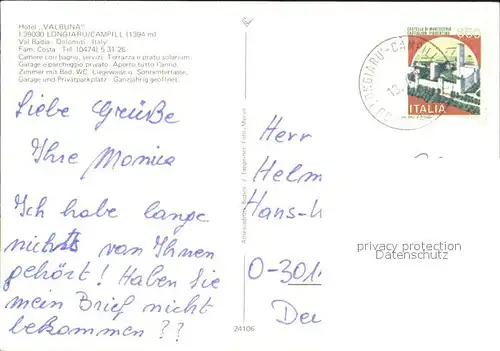 Hotel „VALBUNA"
I-39030 LONGIARU/CAMPILL (1394 m)
Val Badia - Dolomiti - Italy
Fam. Costa Tel. (0474) 5 31 26
Camere con bagno, servizi. Terrazza e prato solarium.
Garage e parcheggio privato. Aperto tutto l'anno.
Zimmer mit Bad, WC. Liegewiese u. Sonnenterrasse.
Garage und Privatparkplatz. Ganzjährig geöffnet.
Liebe Grüße
Ihre Monica
Ich habe lange
nichts von Ihnen
gehört! Haben Sie
mein Brief nicht
bekommen??
24106
LONGIARU'-CAMPILL
950
ITALIA
Herr
Helm
Hans-
O-301
Deu
privacy protection
Datenschutz